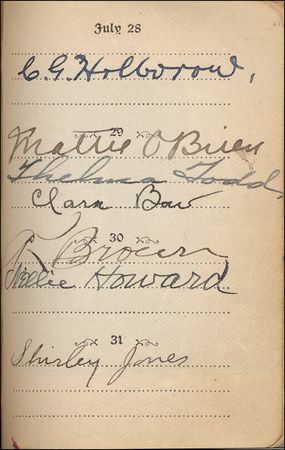 July 28
C. G. Holborow,
29
Mattie O'Brien
Thelma Todd,
Clara Bow
30
R Brocen
Nellie Howard
31
Shirley Jones